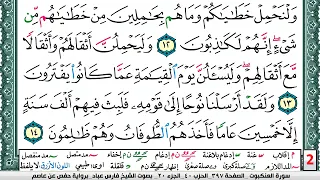 وَلْنَحْمِلْ خَطَٰيَٰكُمْ وَمَا هُم بِحَٰمِلِينَ مِنْ خَطَٰيَٰهُم مِّن
شَىْءٍ إِنَّهُمْ لَكَٰذِبُونَ ١٢ وَلَيَحْمِلُنَّ أَثْقَالَهُمْ وَأَثْقَالًا
مَّعَ أَثْقَالِهِمْ وَلَيُسْـَٔلُنَّ يَوْمَ ٱلْقِيَٰمَةِ عَمَّا كَانُوا۟ يَفْتَرُونَ
١٣ وَلَقَدْ أَرْسَلْنَا نُوحًا إِلَىٰ قَوْمِهِۦ فَلَبِثَ فِيهِمْ أَلْفَ سَنَةٍ
إِلَّا خَمْسِينَ عَامًا فَأَخَذَهُمُ ٱلطُّوفَانُ وَهُمْ ظَٰلِمُونَ ١٤
2
سورة العنكبوت الصفحة ٣٩٧ الحزب ٤٠ الجزء ٢٠ بصوت الشيخ فارس عباد برواية حفص عن عاصم